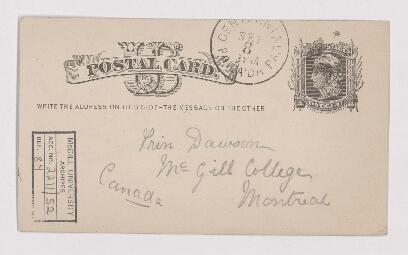 CENTENNIAL
SEP
8
PHILA'DA PA.
POSTAL CARD.
U.S. POSTAGE
ONE CENT
WRITE THE ADDRESS ON THIS SIDE-THE MESSAGE ON THE OTHER
Prin Dawson
Mc Gill College
Montreal
Canada
McGILL UNIVERSITY
ARCHIVES
ACC. NO. 2211/52
REF. 84